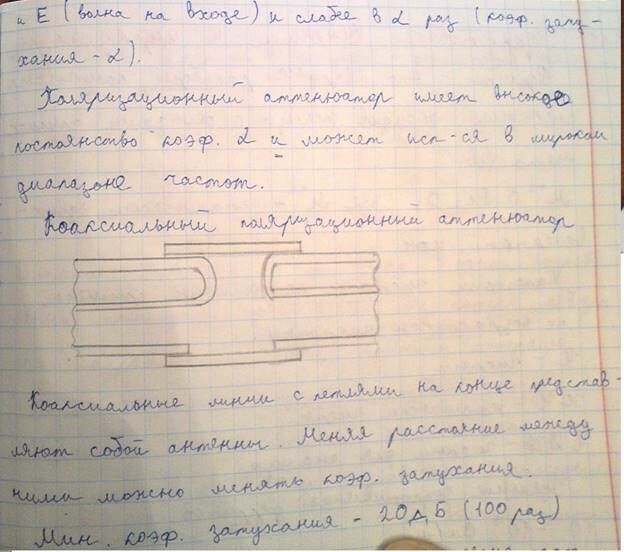 и Е (волна на входе) и слабее в α раз (коэф. зату-
хания - α).
Поляризационный аттенюатор имеет высокое
постоянство коэф. α и может исп-ся в широком
диапазоне частот.
Коаксиальный поляризационный аттенюатор
Коаксиальные линии с петлями на конце представ-
ляют собой антенны. Меняя расстояние между
ними можно менять коэф. затухания.
Мин. коэф. затухания - 20дБ (100 раз)